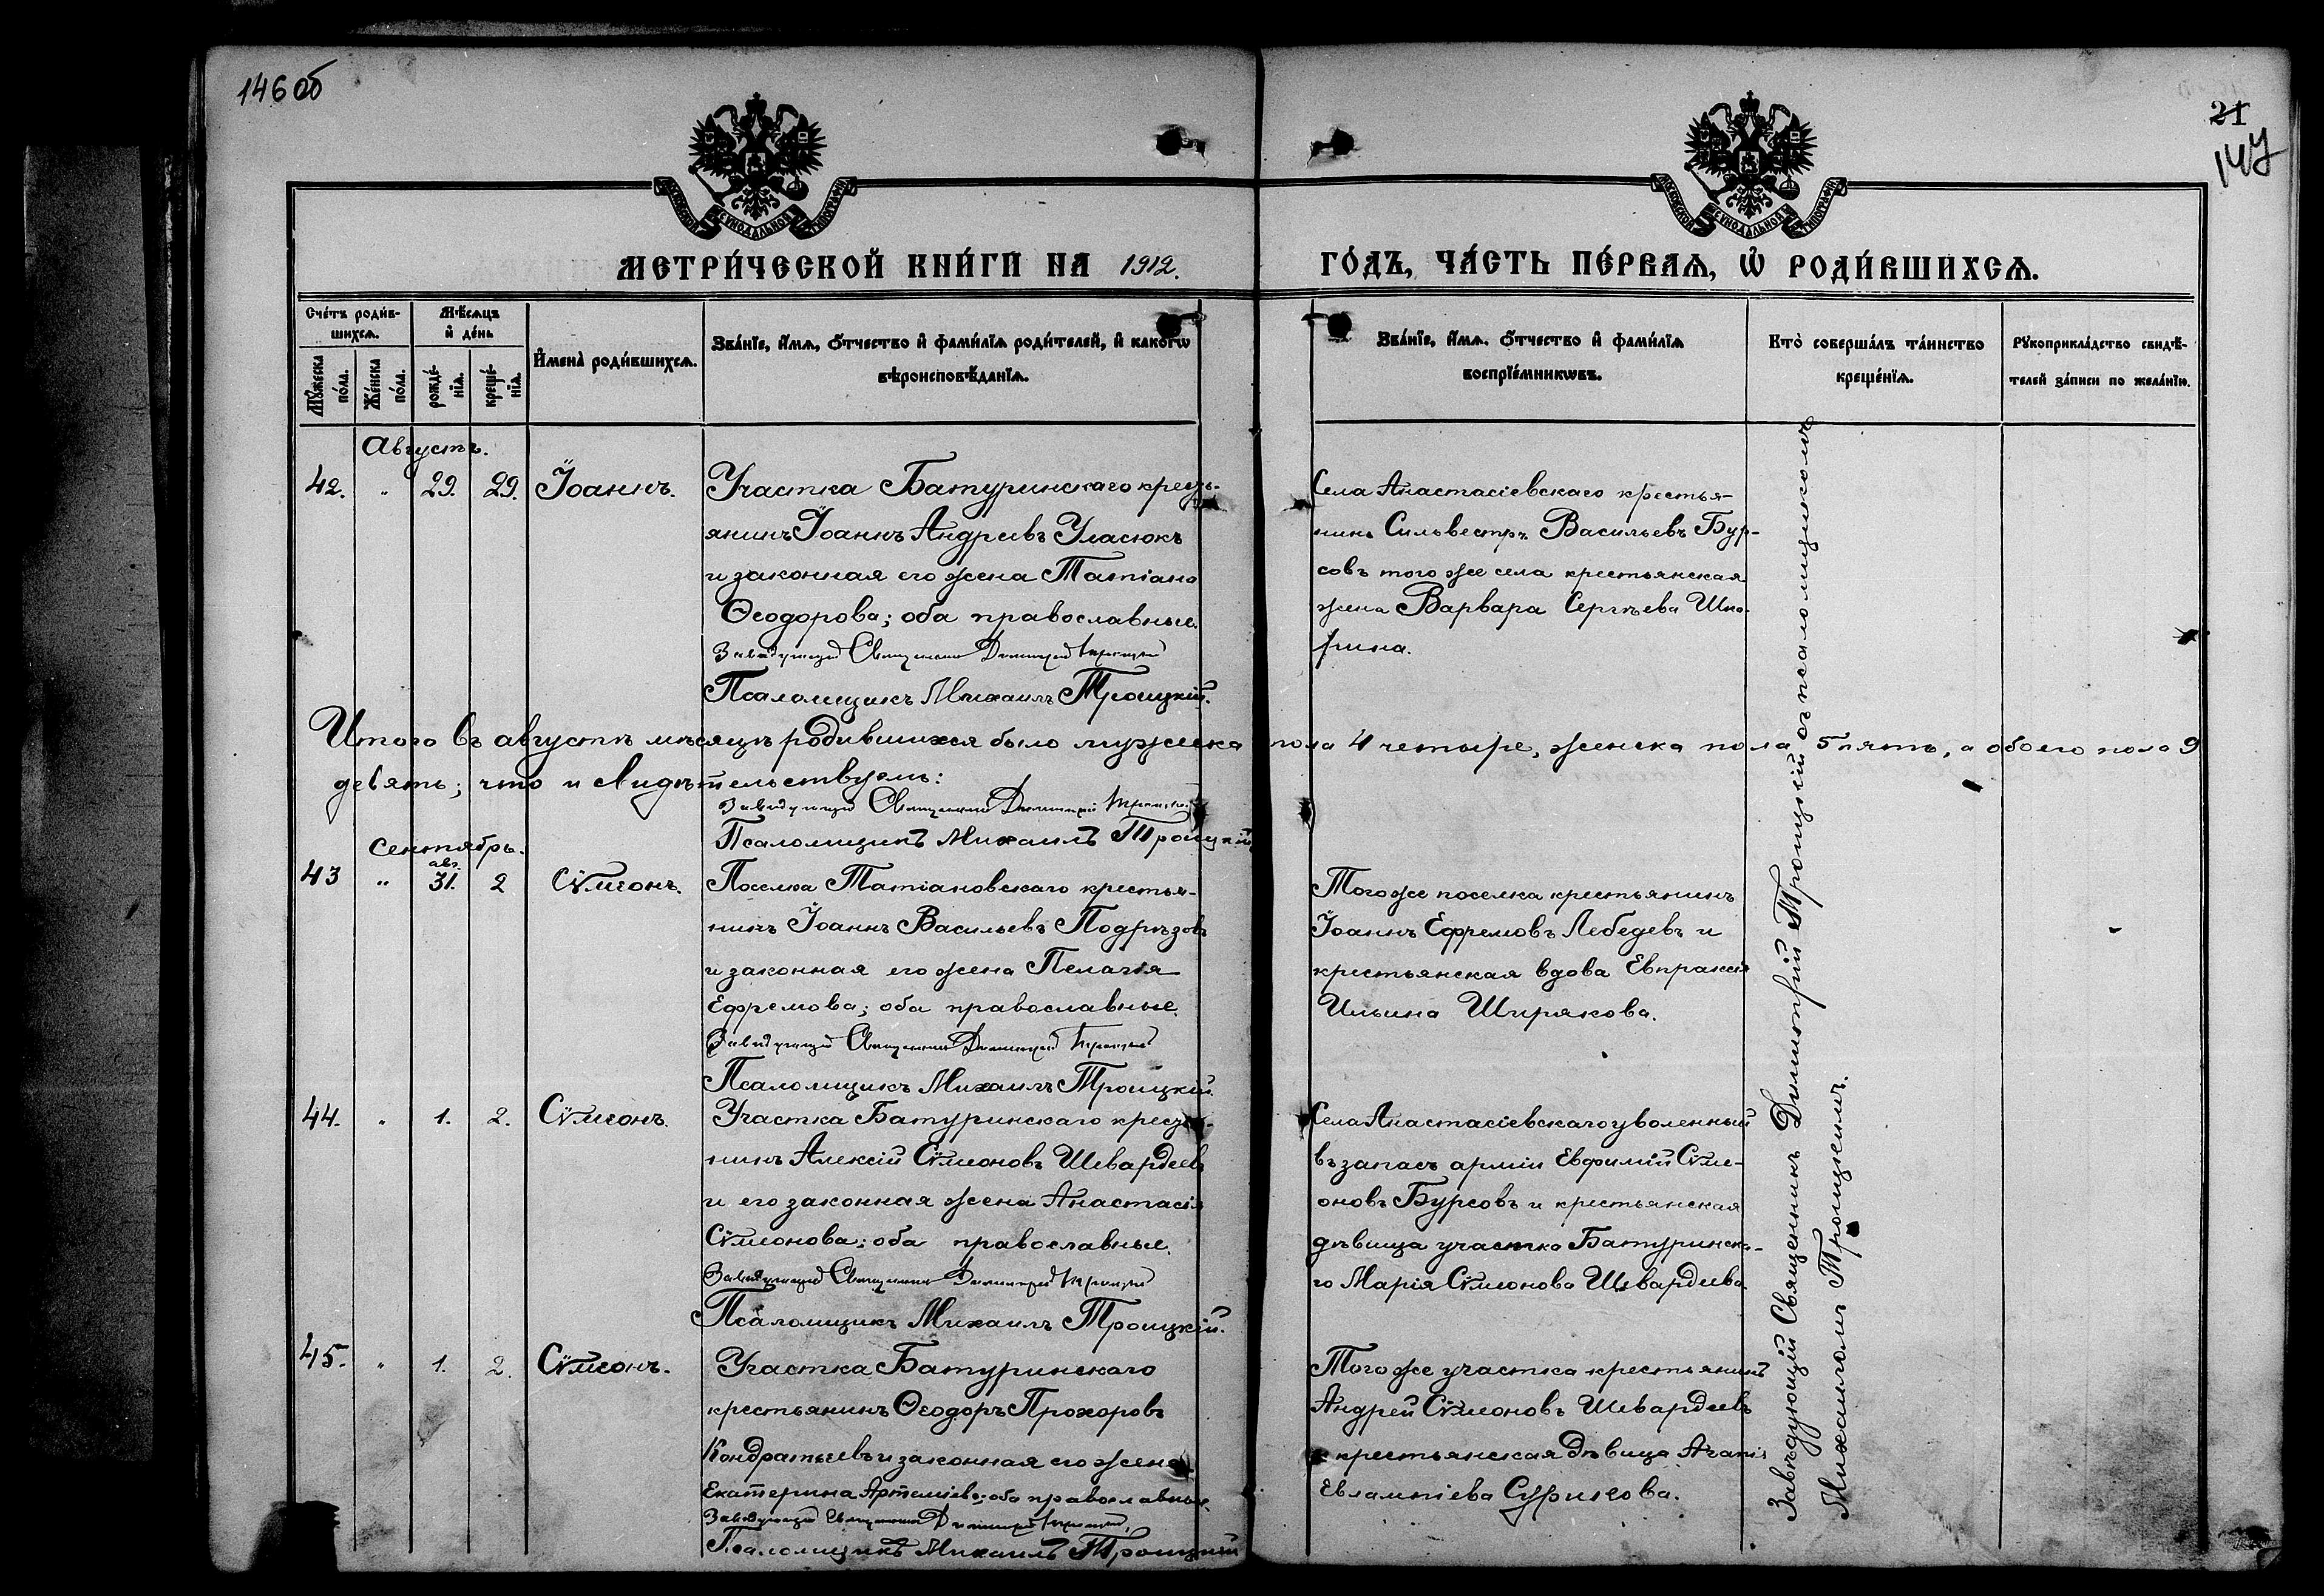 146 об
21
147
МЕТРИ́ЧЕСКОЙ КНИ́ГИ НА 1912. ГО́ДЪ, ЧА́СТЬ ПЕ́РВАЯ, Ѡ РОДИ́ВШИХСЯ.
Сче́тъ роди́в-
шихся.
Мꙋ́жеска по́ла.
Же́нска по́ла.
Мѣ́сяцъ
и де́нь
рожде́-
нія.
креще́-
нія.
И́мена роди́вшихся.
Зва́ніе, и́мя, ѻ́тчество и фами́лія роди́телей, и како́гѡ
вѣроисповѣ́данія.
Зва́ніе, и́мя, ѻ́тчество и фами́лія
воспріе́мникѡвъ.
Кто̀ соверша́лъ та́инство
креще́нія.
Рꙋкоприкла́дство свидѣ́-
телей за́писи по жела́нію.
Августъ.
42. " 29. 29. Іоаннъ.
Участка Батуринскаго кресть-
янинъ Іоаннъ Андреевъ Уласюкъ
и законная его жена Татіана
Ѳеодорова; оба православные.
Завѣдующій Священникъ Димитрій Троицкій
Псаломщикъ Михаилъ Троицкій.
Села Анастасіевскаго крестья-
нинъ Сильвестръ Васильевъ Бур-
совъ того же села крестьянская
жена Варвара Сергѣева
Итого въ августѣ мѣсяцѣ родившихся было мужеска пола 4 четыре, женска пола 5 пять, а обоего пола 9
девять; что и свидѣтельствуемъ:
Завѣдующій Священникъ Димитрій Троицкій
Псаломщикъ Михаилъ Троицкій
Сентябрь.
авг.
43 " 31. 2 Сѵмеонъ.
Поселка Татіановскаго крестья-
нинъ Іоаннъ Васильевъ Подрѣзовъ
и законная его жена Пелагія
Ефремова; оба православные.
Завѣдующій Священникъ Димитрій Троицкій
Псаломщикъ Михаилъ Троицкій.
Того же поселка крестьянинъ
Іоаннъ Ефремовъ Лебедевъ и
крестьянская вдова Евпраксія
Ильина Ширякова.
44. " 1. 2. Сѵмеонъ.
Участка Батуринскаго кресть-
нинъ Алексій Сѵмеоновъ Швардеевъ
и его законная жена Анастасія
Сѵмеонова; оба православные.
Завѣдующій Священникъ Димитрій Троицкій
Псаломщикъ Михаилъ Троицкій.
Села Анастасіевскаго уволенный
въ запасъ арміи Евфимій Сѵме-
оновъ Бурсовъ и крестьянская
дѣвица участка Батуринска-
го Марія Сѵмеонова Швардеева.
45. " 1. 2. Сѵмеонъ.
Участка Батуринскаго
крестьянинъ Ѳеодоръ Прохоровъ
Кондратьевъ и законная его жена
Екатерина Артеміева; оба православные.
Завѣдующій Священникъ Димитрій Троицкій
Псаломщикъ Михаилъ Троицкій
Того же участка крестьянинъ
Андрей Сѵмеоновъ Швардеевъ
и крестьянская дѣвица Агапія
Евлампіева Сурикова.
Завѣдующій Священникъ Димитрій Троицкій съ псаломщикомъ
Михаиломъ Троицкимъ.